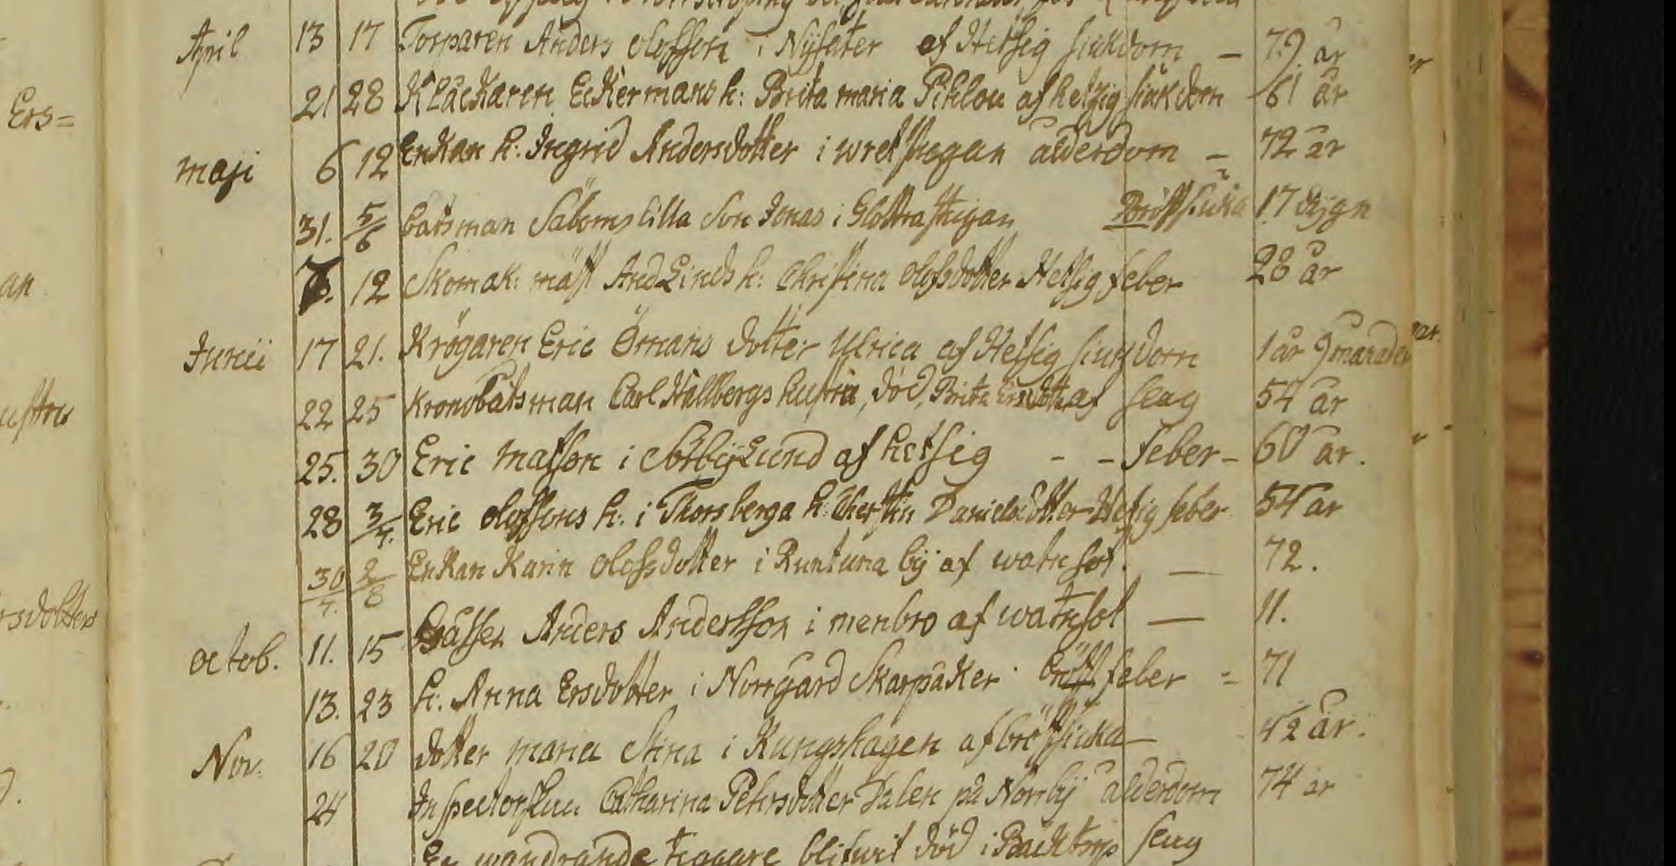 April 13 17 Torparen Anders Olofsson i Nysäter af Hetsig siukdom - 79. år
21 28 Klåckaren Eckermans h: Brita maria Pihlou af hetzig siukdom 61 år
maji 6 12 Enkan h: Ingrid Andersdotter i wretstugan ålderdom - 72 år
31. 5/6 båtsman Säboms lilla son Jonas i Slottrastugan Bröstsiuka 17 dygn
7. 12 Skomak: mäst And Linds h: Christina Olofsdotter Hetsig feber 28 år
Junii 17 21. Krögaren Eric Ömans dotter Ulrica af Hetsig siukdom 1 år 9 månader
22 25 Kronobåtsman Carl Hallbergs hustru, död, Brita Ersdotter af slag 54 år
25. 30 Eric Matsson i Lund af hetsig - - feber - 60 år.
28 3/7. Eric Olofssons h: i Thorsberga h: Cherstin Danielsdotter Hetsig feber 54 år
30/7. 2/8 Enkan Karin Olofsdotter i Runtuna by af watusot. — 72.
octob. 11. 15 Gåssen Anders Andersson i menbro af watusot — 11.
13. 23 h: Anna Ersdotter i Norrgård Skarpåker bröst feber = 71
Nov. 16 20 dotter maria Stina i Kungshagen af bröstsiuka — 42 år.
24 Inspectorskan Catharina Pehrsdotter Dalen på Norrby ålderdom 74 år
En wandrande tiggare blifwit död i Bäcktorp slag
Ers=